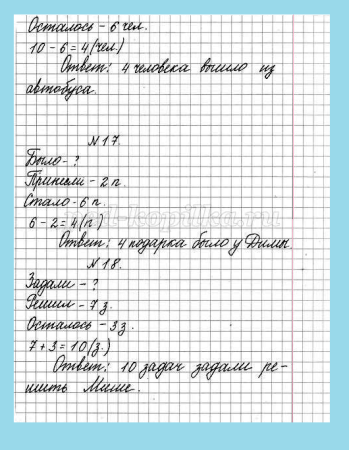 Осталось – 6 чел.
10 – 6 = 4 (чел.)
Ответ: 4 человека вышло из
автобуса.
N 17.
Было – ?
Принесли – 2 п.
Стало – 6 п.
6 – 2 = 4 (п.)
Ответ: 4 подарка было у Димы.
N 18.
Задали – ?
Решил – 7 з.
Осталось – 3 з.
7 + 3 = 10 (з.)
Ответ: 10 задач задали ре-
шить Мише.